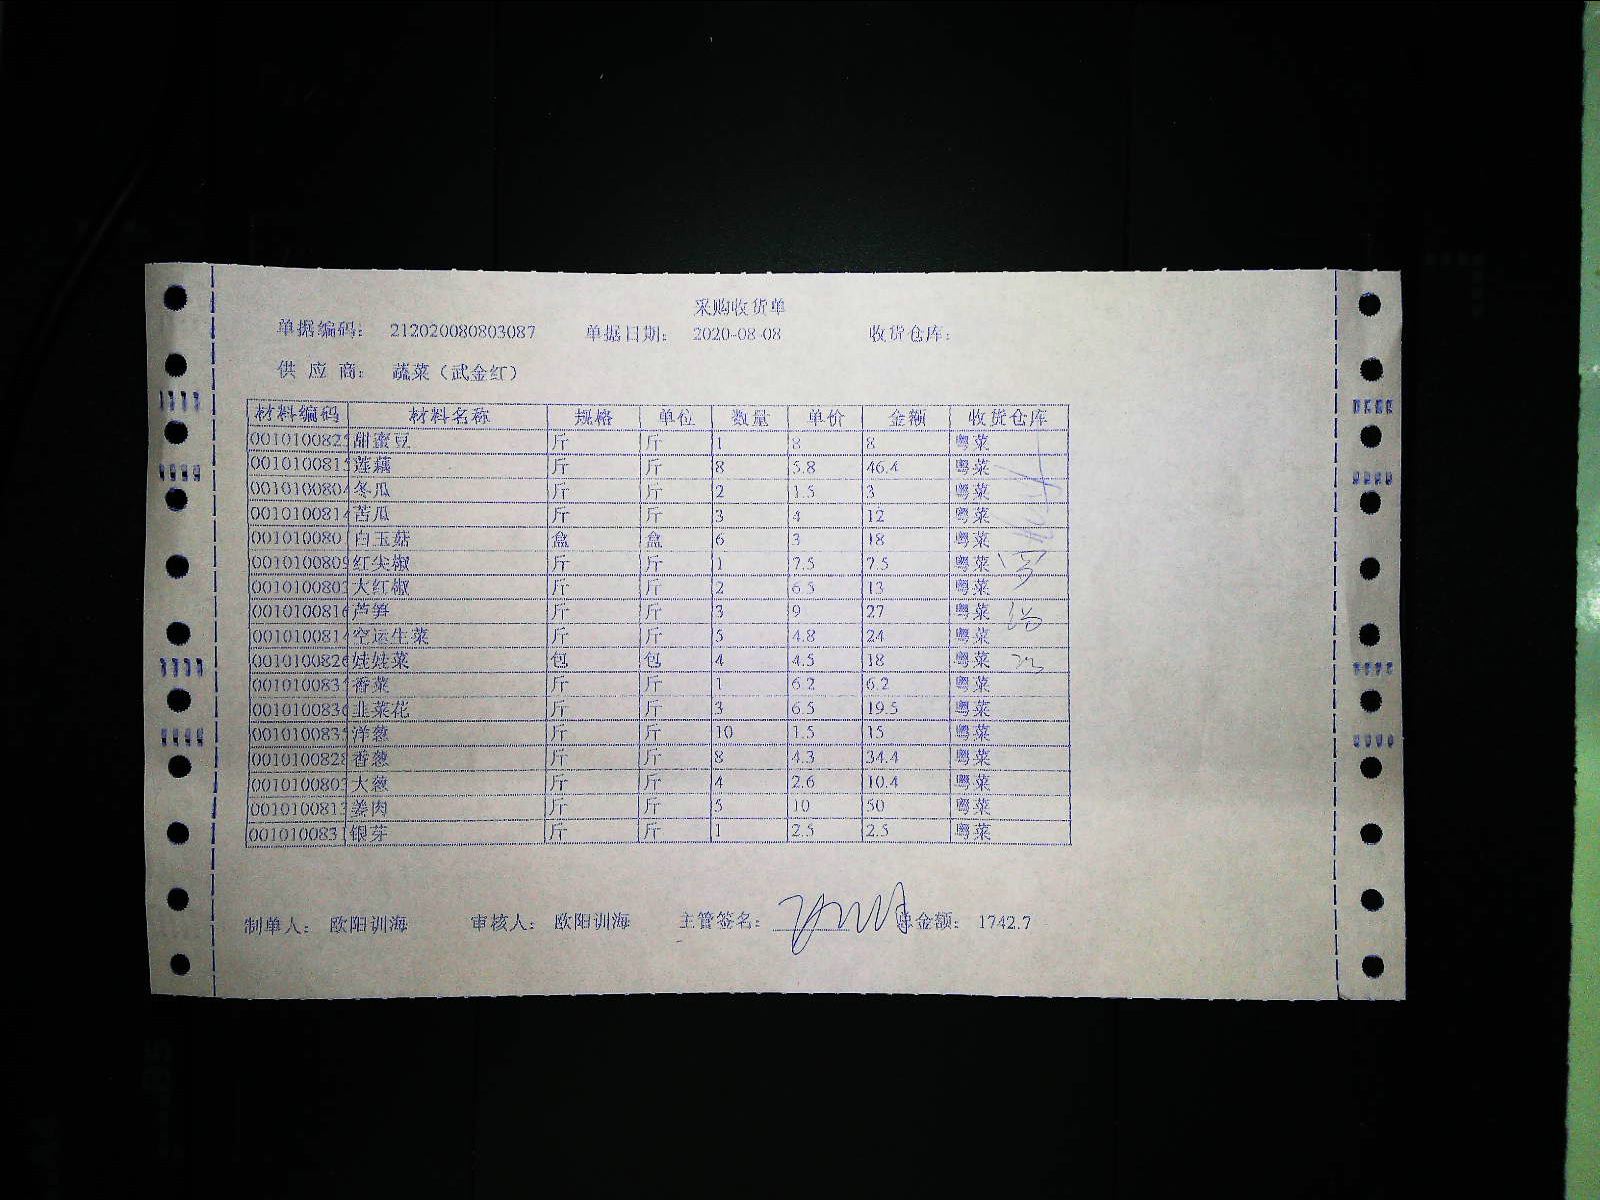 采购收货单
单据编码： 212020080803087 单据日期： 2020-08-08 收货仓库：
供 应 商： 蔬菜（武金红）
材料编码 材料名称 规格 单位 数量 单价 金额 收货仓库
0010100825 甜蜜豆 斤 斤 1 8 8 粤菜
0010100815 莲藕 斤 斤 8 5.8 46.4 粤菜
001010080 冬瓜 斤 斤 2 1.5 3 粤菜
001010081 苦瓜 斤 斤 3 4 12 粤菜
001010080 白玉菇 盒 盒 6 3 18 粤菜
0010100809 红尖椒 斤 斤 1 7.5 7.5 粤菜
001010080 大红椒 斤 斤 2 6.5 13 粤菜
0010100816 芦笋 斤 斤 3 9 27 粤菜
001010081 空运生菜 斤 斤 5 4.8 24 粤菜
0010100826 娃娃菜 包 包 4 4.5 18 粤菜
001010083 香菜 斤 斤 1 6.2 6.2 粤菜
0010100836 韭菜花 斤 斤 3 6.5 19.5 粤菜
001010083 洋葱 斤 斤 10 1.5 15 粤菜
0010100828 香葱 斤 斤 8 4.3 34.4 粤菜
001010080 大葱 斤 斤 4 2.6 10.4 粤菜
001010081 姜肉 斤 斤 5 10 50 粤菜
0010100831 银芽 斤 斤 1 2.5 2.5 粤菜
制单人： 欧阳训海 审核人： 欧阳训海 主管签名： 总金额： 1742.7